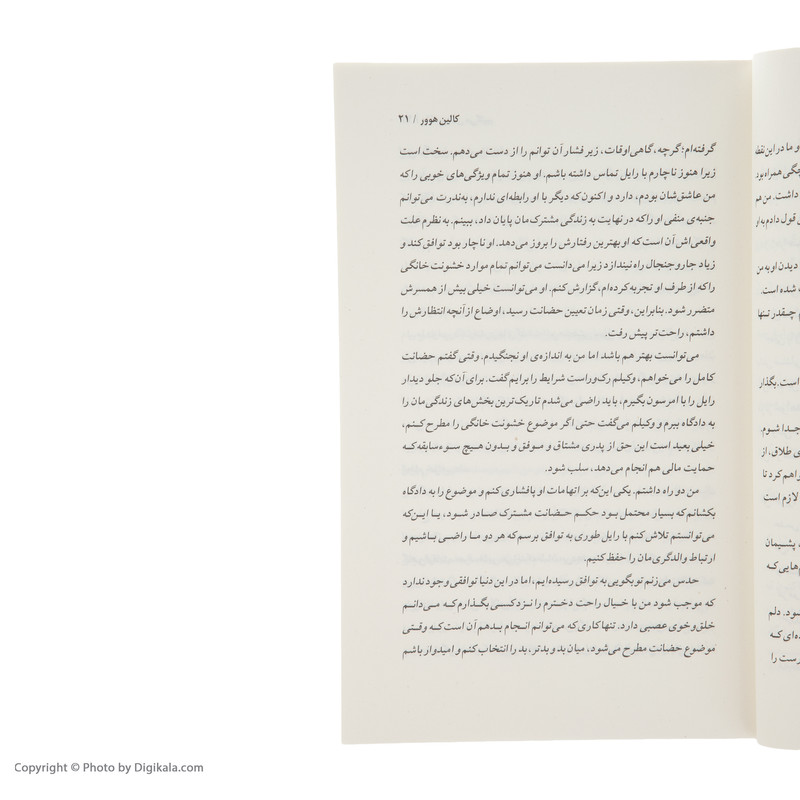 کالین هوور / ۲۱
گرفته‌ام؛ گرچه، گاهی اوقات، زیر فشار آن توانم را از دست می‌دهم. سخت است
زیرا هنوز ناچارم با رایل تماس داشته باشم. او هنوز تمام ویژگی‌های خوبی را که
من عاشق‌شان بودم، دارد و اکنون که دیگر با او رابطه‌ای ندارم، به‌ندرت می‌توانم
جنبه‌ی منفی او را که در نهایت به زندگی مشترک‌مان پایان داد، ببینم. به نظرم علت
واقعی‌اش آن است که او بهترین رفتارش را بروز می‌دهد. او ناچار بود توافق کند و
زیاد جاروجنجال راه نیندازد زیرا می‌دانست می‌توانم تمام موارد خشونت خانگی
را که از طرف او تجربه کرده‌ام، گزارش کنم. او می‌توانست خیلی بیش از همسرش
متضرر شود. بنابراین، وقتی زمان تعیین حضانت رسید، اوضاع از آنچه انتظارش را
داشتم، راحت‌تر پیش رفت.
می‌توانست بهتر هم باشد اما من به اندازه‌ی او نجنگیدم. وقتی گفتم حضانت
کامل را می‌خواهم، وکیلم رک‌وراست شرایط را برایم گفت. برای آن‌که جلو دیدار
رایل را با امرسون بگیرم، باید راضی می‌شدم تاریک‌ترین بخش‌های زندگی‌مان را
به دادگاه ببرم و وکیلم می‌گفت حتی اگر موضوع خشونت خانگی را مطرح کنم،
خیلی بعید است این حق از پدری مشتاق و موفق و بدون هیچ سوءسابقه که
حمایت مالی هم انجام می‌دهد، سلب شود.
من دو راه داشتم. یکی این‌که بر اتهامات او پافشاری کنم و موضوع را به دادگاه
بکشانم که بسیار محتمل بود حکم حضانت مشترک صادر شود، یا این‌که
می‌توانستم تلاش کنم با رایل طوری به توافق برسم که هر دو ما راضی باشیم و
ارتباط والدگری‌مان را حفظ کنیم.
حدس می‌زنم تو بگویی به توافق رسیده‌ایم، اما در این دنیا توافقی وجود ندارد
که موجب شود من با خیال راحت دخترم را نزد کسی بگذارم که می‌دانم
خلق‌وخوی عصبی دارد. تنها کاری که می‌توانم انجام بدهم آن است که وقتی
موضوع حضانت مطرح می‌شود، میان بد و بدتر، بد را انتخاب کنم و امیدوار باشم
و ما در این
همراه بود
داشت. من هم
قول دادم به او
دیدن او به من
شده است.
چقدر تنها
است. بگذار
جدا شوم.
طلاق، از
کرد تا
لازم است
پشیمان
هایی که
دلم
ده‌ای که
را
Copyright © Photo by Digikala.com